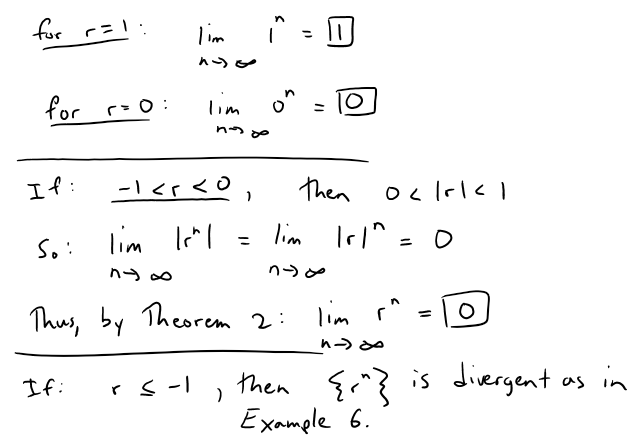 for r=1: lim n→∞ 1ⁿ = 1
for r=0: lim n→∞ 0ⁿ = 0
If: -1<r<0, then 0<|r|<1
So: lim n→∞ |rⁿ| = lim n→∞ |r|ⁿ = 0
Thus, by Theorem 2: lim n→∞ rⁿ = 0
If: r ≤ -1, then {rⁿ} is divergent as in
Example 6.